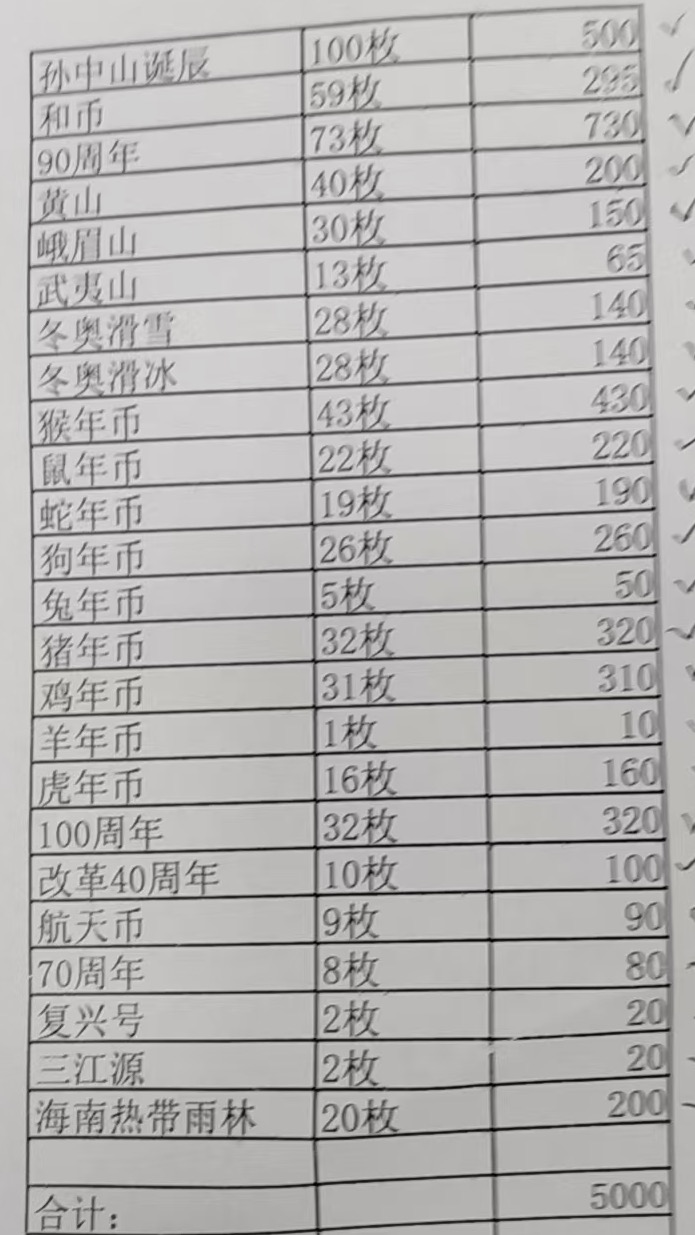 孙中山诞辰 100枚 500
和币 59枚 295
90周年 73枚 730
黄山 40枚 200
峨眉山 30枚 150
武夷山 13枚 65
冬奥滑雪 28枚 140
冬奥滑冰 28枚 140
猴年币 43枚 430
鼠年币 22枚 220
蛇年币 19枚 190
狗年币 26枚 260
兔年币 5枚 50
猪年币 32枚 320
鸡年币 31枚 310
羊年币 1枚 10
虎年币 16枚 160
100周年 32枚 320
改革40周年 10枚 100
航天币 9枚 90
70周年 8枚 80
复兴号 2枚 20
三江源 2枚 20
海南热带雨林 20枚 200
合计： 5000